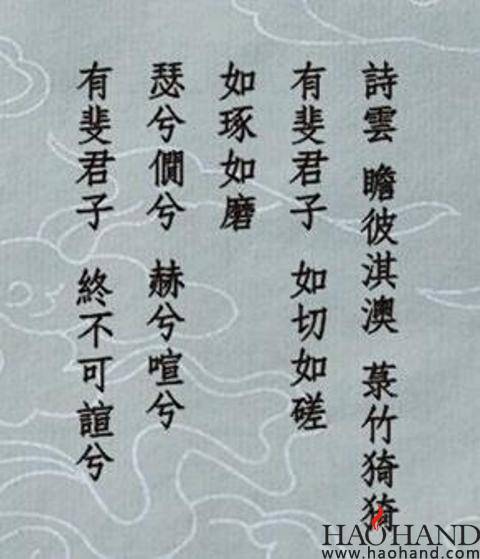 詩雲 瞻彼淇澳 菉竹猗猗
有斐君子 如切如磋
如琢如磨
瑟兮僩兮 赫兮喧兮
有斐君子 終不可諠兮
HAOHAND
www.haohand.com